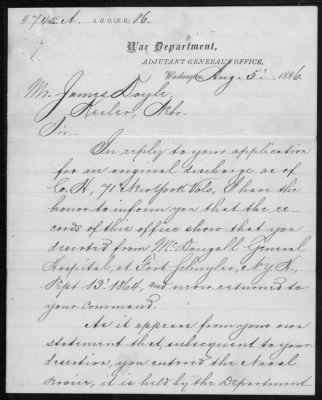 2742 A. A.G.O. (E.B.) 86.
War Department,
ADJUTANT GENERAL'S OFFICE,
Washington, Aug. 5", 1886.
Mr. James Doyle,
Neb.
Sir:
In reply to your application
for an original discharge as of
Co. H, 71 New York Vols, I have the
honor to inform you that the re-
cords of this office show that you
deserted from McDougall General
Hospital, at Fort Schuyler, N.Y. H.,
Sept 13" 1864, and never returned to
your command.
As it appears from your own
statement that, subsequent to your
desertion, you entered the Naval
Service, it is held by the Department